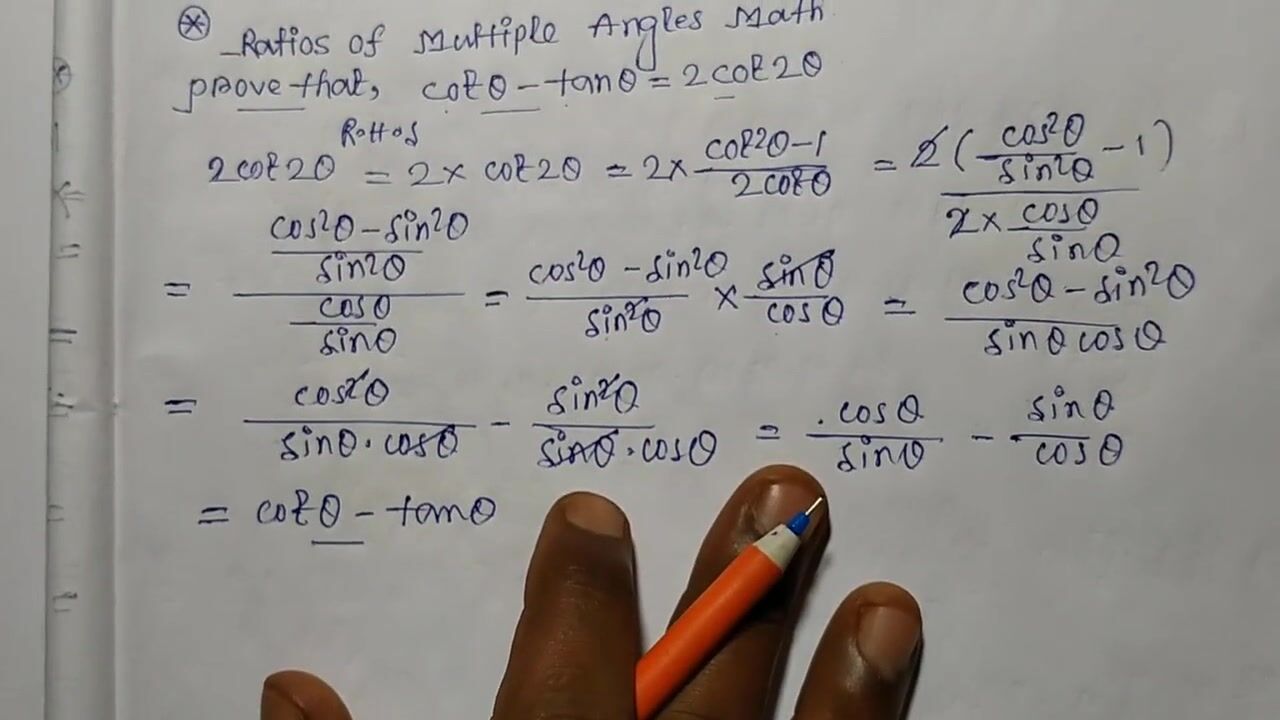 ⊛ Ratios of Multiple Angles Math
prove that, cotθ - tanθ = 2cot2θ
Rattos
2cot2θ = 2 × cot2θ = 2 × (cot²θ-1)/(2cotθ) = 2(cos²θ/sin²θ - 1)/(2 × cosθ/sinθ)
= ((cos²θ - sin²θ)/sin²θ)/(cosθ/sinθ) = (cos²θ - sin²θ)/sin²θ × sinθ/cosθ = (cos²θ - sin²θ)/(sinθ cosθ)
= cos²θ/(sinθ·cosθ) - sin²θ/(sinθ·cosθ) = cosθ/sinθ - sinθ/cosθ
= cotθ - tanθ